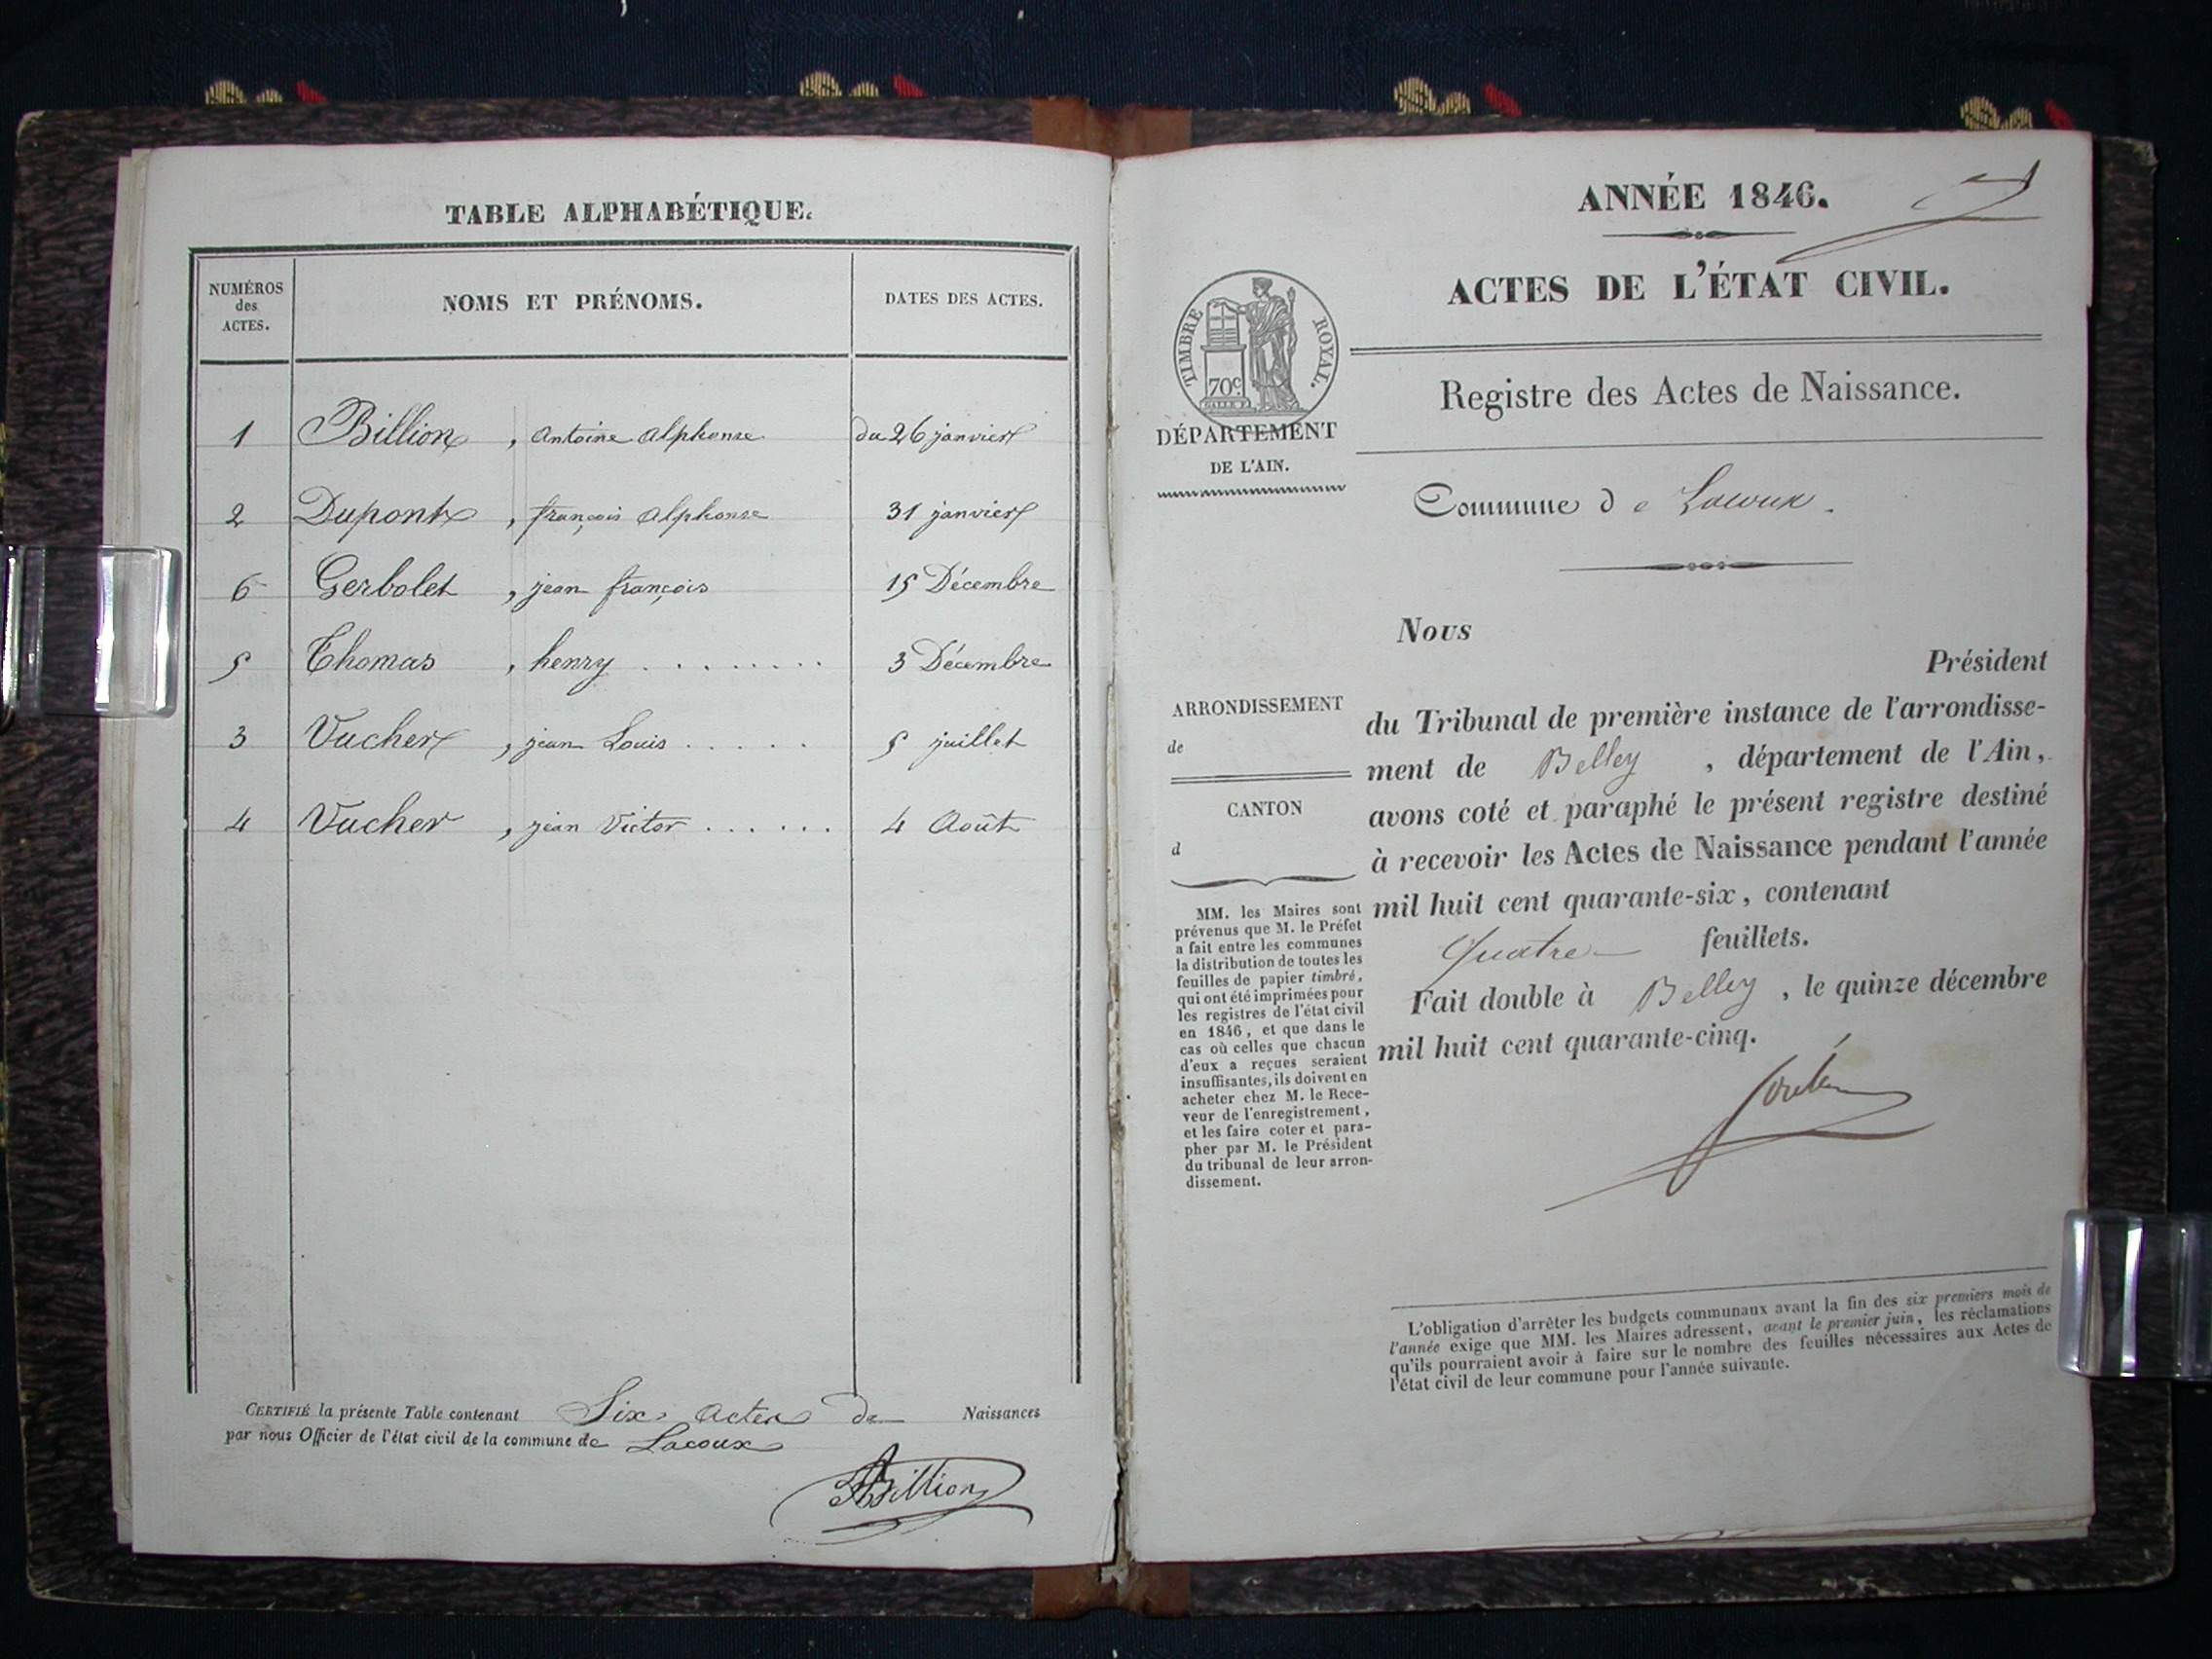 TABLE ALPHABÉTIQUE.
NUMÉROS
des
ACTES.
NOMS ET PRÉNOMS.
DATES DES ACTES.
1 Billion, Antoine Alphonse du 26 janvier
2 Dupont, françois Alphonse 31 janvier
6 Gerbolet, jean françois 15 Décembre
5 Thomas, henry ........ 3 Décembre
3 Vucher, jean Louis ..... 5 juillet
4 Vucher, jean Victor ...... 4 Août
CERTIFIÉ la présente Table contenant Six Actes de Naissances
par nous Officier de l'état civil de la commune de Lacoux
Billion
ANNÉE 1846.
ACTES DE L'ÉTAT CIVIL.
TIMBRE ROYAL.
70c
DÉPARTEMENT
DE L'AIN.
Registre des Actes de Naissance.
Commune de Lacoux.
Nous
Président
du Tribunal de première instance de l'arrondisse-
ment de Belley, département de l'Ain,
avons coté et paraphé le présent registre destiné
à recevoir les Actes de Naissance pendant l'année
mil huit cent quarante-six, contenant
Quatre feuillets.
Fait double à Belley, le quinze décembre
mil huit cent quarante-cinq.
ARRONDISSEMENT
de
CANTON
d
MM. les Maires sont
prévenus que M. le Préfet
a fait entre les communes
la distribution de toutes les
feuilles de papier timbré,
qui ont été imprimées pour
les registres de l'état civil
en 1846, et que dans le
cas où celles que chacun
d'eux a reçues seraient
insuffisantes, ils doivent en
acheter chez M. le Rece-
veur de l'enregistrement,
et les faire coter et para-
pher par M. le Président
du tribunal de leur arron-
dissement.
L'obligation d'arrêter les budgets communaux avant la fin des six premiers mois de
l'année exige que MM. les Maires adressent, avant le premier juin, les réclamations
qu'ils pourraient avoir à faire sur le nombre des feuilles nécessaires aux Actes de
l'état civil de leur commune pour l'année suivante.